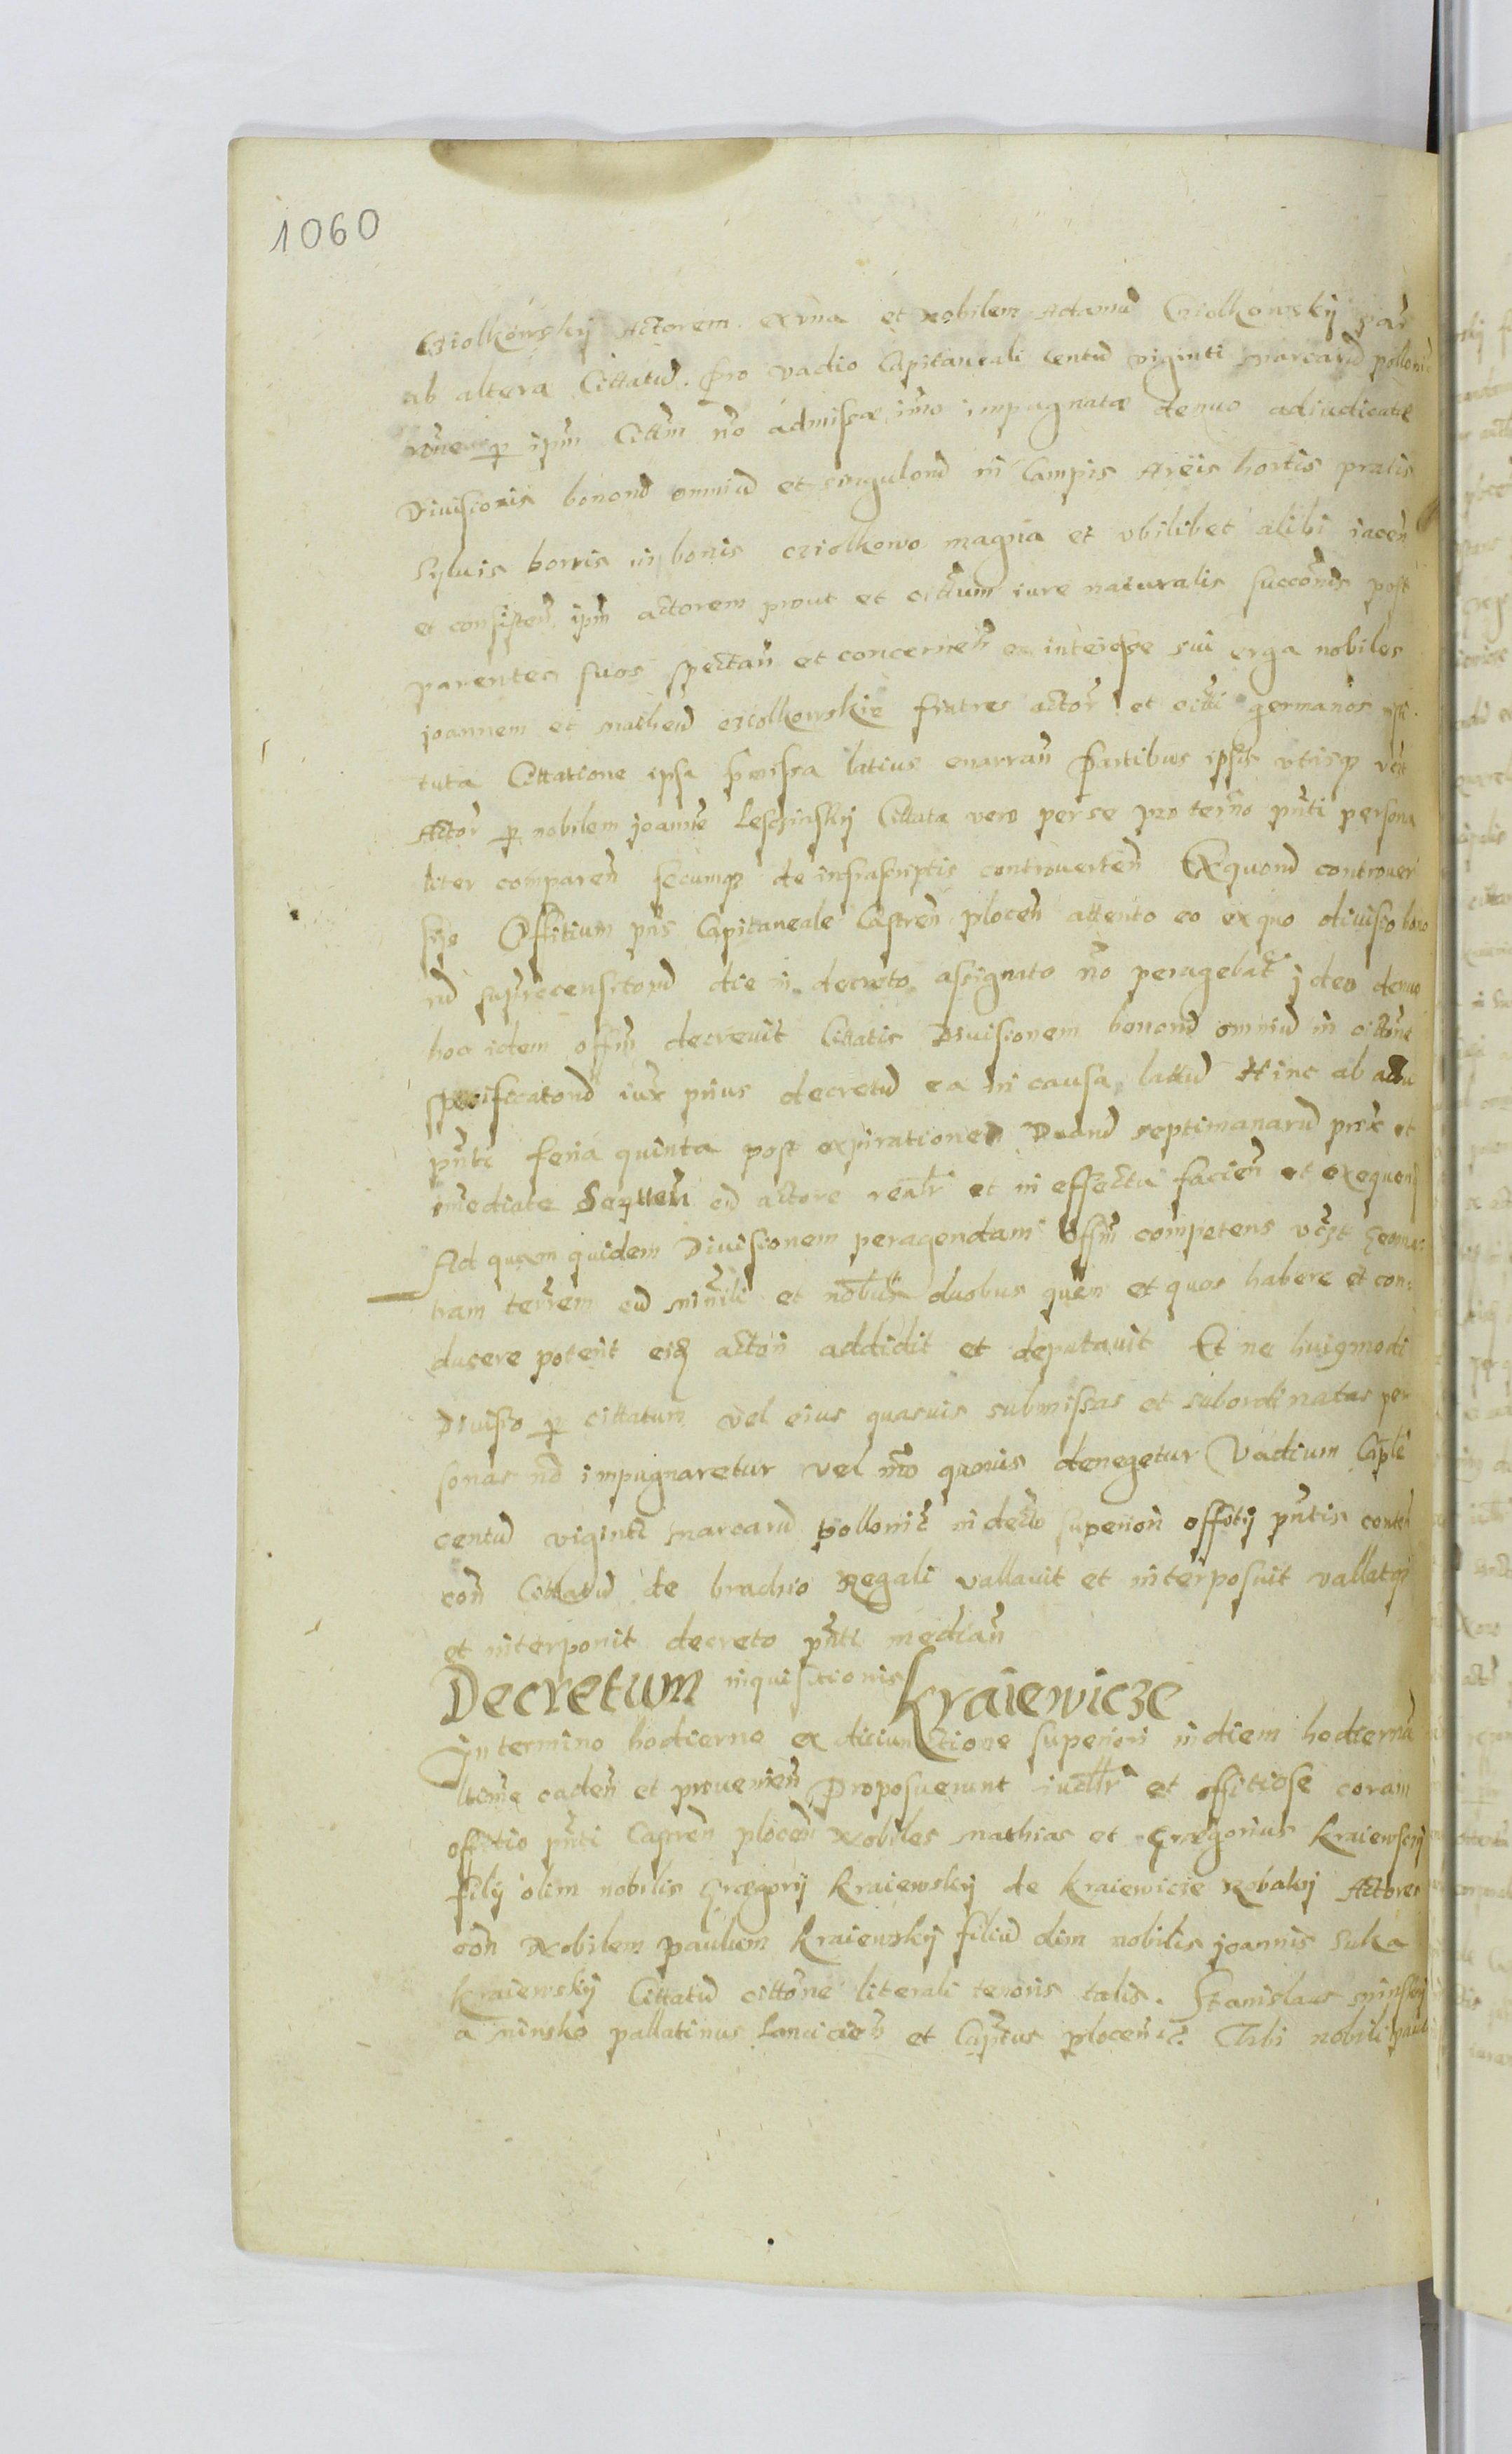 1060
Cziolkowskij Actorem ex vna et nobilem Adamũ Cziolkowskij par
ab altera Cittatũ. Pro vadio Capitaneali Centũ viginti Marcarũ pollonic
ipm Cittm nõ admissæ imo impugnatæ denuo adiudicatæ
Diuisionis bonorũ omniũ et singulorũ in Campis Areis hortis pratis
Syluis borris in bonis cziolkowo magna et vbilibet alibi iaceñ
et consisteñ ipm actorem prout et cittum iure naturalis succonis post
parentes suos spectañ et concerneñ ex interesse sui erga nobiles
joannem et Matheũ cziolkowskie fratres actor et citti germanos
tuta Cittatione ipsa pmissa latius enarrañ Partibus ipsis vtrisq vt
Actor p nobilem joannẽ Lesczinskij Cittata vero per se pro termo pñti persona
liter compareñ secumq de infrascriptis controuerteñ Ex quorũ controuer
sijs Offitium pñs Capitaneale Castreñ ploceñ attento eo ex quo diuisio bono
rũ suprecensitorũ die in decreto assignato nõ peragebat jdeo denuo
hoc idem offm decreuit Cittatis Diuisionem bonorũ omniũ in cittone
specificatorũ iux prius decretũ ea in causa lattũ Hinc ab actu
pñti feria quinta post expirationem Duarũ septimanarũ prox et
imediate Sequeñ cũ actore realr et in effectu facieñ et exequeñ
Ad quam quidem Diuisionem peragendam offm competens vczt Geome
tram terrem cũ minili et nobilibus duobus quem et quos habere et con
ducere poterit eisq actori addidit et deputauit Et ne huigmodi
Diuisio p cittatum vel eius quasuis submissas et subordinatas per
sonas nõ impugnaretur vel mõ quouis denegetur Vadium Caple
centũ viginti marcarũ pollonic in decto superiori offitij pñtis conteñ
coñ Cittatũ de brachio Regali vallauit et interposuit vallatq
et interponit decreto pñti mediañ
Decretum inquisitionis Kraiewicze
In termino hodierno ex diciunctione superiori in diem hodiernũ
ltime cadeñ et proueniẽn Proposuerunt iudlr et offitiose coram
offitio pñti Castreñ ploceñ Nobiles Mathias et Grægorius Kraiewscij
filij olim nobilis Grægorij Kraiewskij de Kraiewicie Robakij Actores
coñ Nobilem paulum Kraiewskij filiũ olim nobilis joannis Suka
Kraiewskij Cittatũ cittone literali tenoris talis. Stanislaus Minskij
a Minsko pallatinus Lancicieñ et Captus ploceñ. Tibi nobili paulo